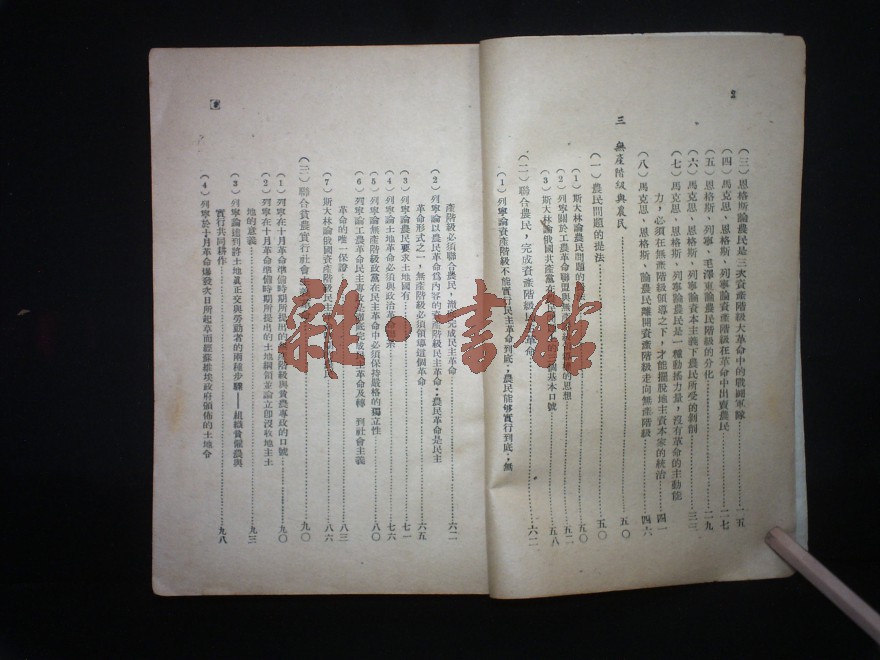 2
（三）恩格斯論農民是三次資產階級大革命中的戰鬭軍隊……一五
（四）馬克思、恩格斯、列寧論資產階級在革命中出賣農民……二七
（五）恩格斯、列寧、毛澤東論農民階級的分化……二九
（六）馬克思、恩格斯、列寧論資本主義下農民所受的剝削……三三
（七）馬克思、恩格斯、列寧論農民是一種動搖力量，沒有革命的主動能
力，必須在無產階級領導之下，才能擺脫地主資本家的統治……四一
（八）馬克思、恩格斯、論農民離開資產階級走向無產階級……四六
三　無產階級與農民……五〇
（一）農民問題的提法……五〇
（1）斯大林論農民問題的……五〇
（2）列寧關於工農革命聯盟與無產階級……的思想……五二
（3）斯大林論俄國共產黨在……個基本口號……五八
（二）聯合農民，完成資產階級民主革命……六二
（1）列寧論資產階級不能實行民主革命到底，農民能够實行到底，無
產階級必須聯合農民，澈底完成民主革命……六二
（2）列寧論以農民革命爲內容的……民主革命，農民革命是民主
革命形式之一，無產階級必須領導這個革命……六五
（3）列寧論農民要求土地國有……七一
（4）列寧論土地革命必須與政治革命……七六
（5）列寧論無產階級政黨在民主革命中必須保持嚴格的獨立性……八〇
（6）列寧論工農革命民主專政是澈底完成民主革命及轉　到社會主義
革命的唯一保證……八三
（7）斯大林論俄國資產階級民主……八六
（三）聯合貧農實行社會主義……九〇
（1）列寧在十月革命準備時期所提出的無產階級與貧農專政的口號……九〇
（2）列寧在十月革命準備時期所提出的土地綱領並論立卽沒收地主土
地的意義……九三
（3）列寧論達到將土地眞正交與勞動者的兩種步驟——組織貧僱農與
實行共同耕作
（4）列寧於十月革命爆發次日所起草而經蘇維埃政府頒佈的土地令……九八
雜·書館